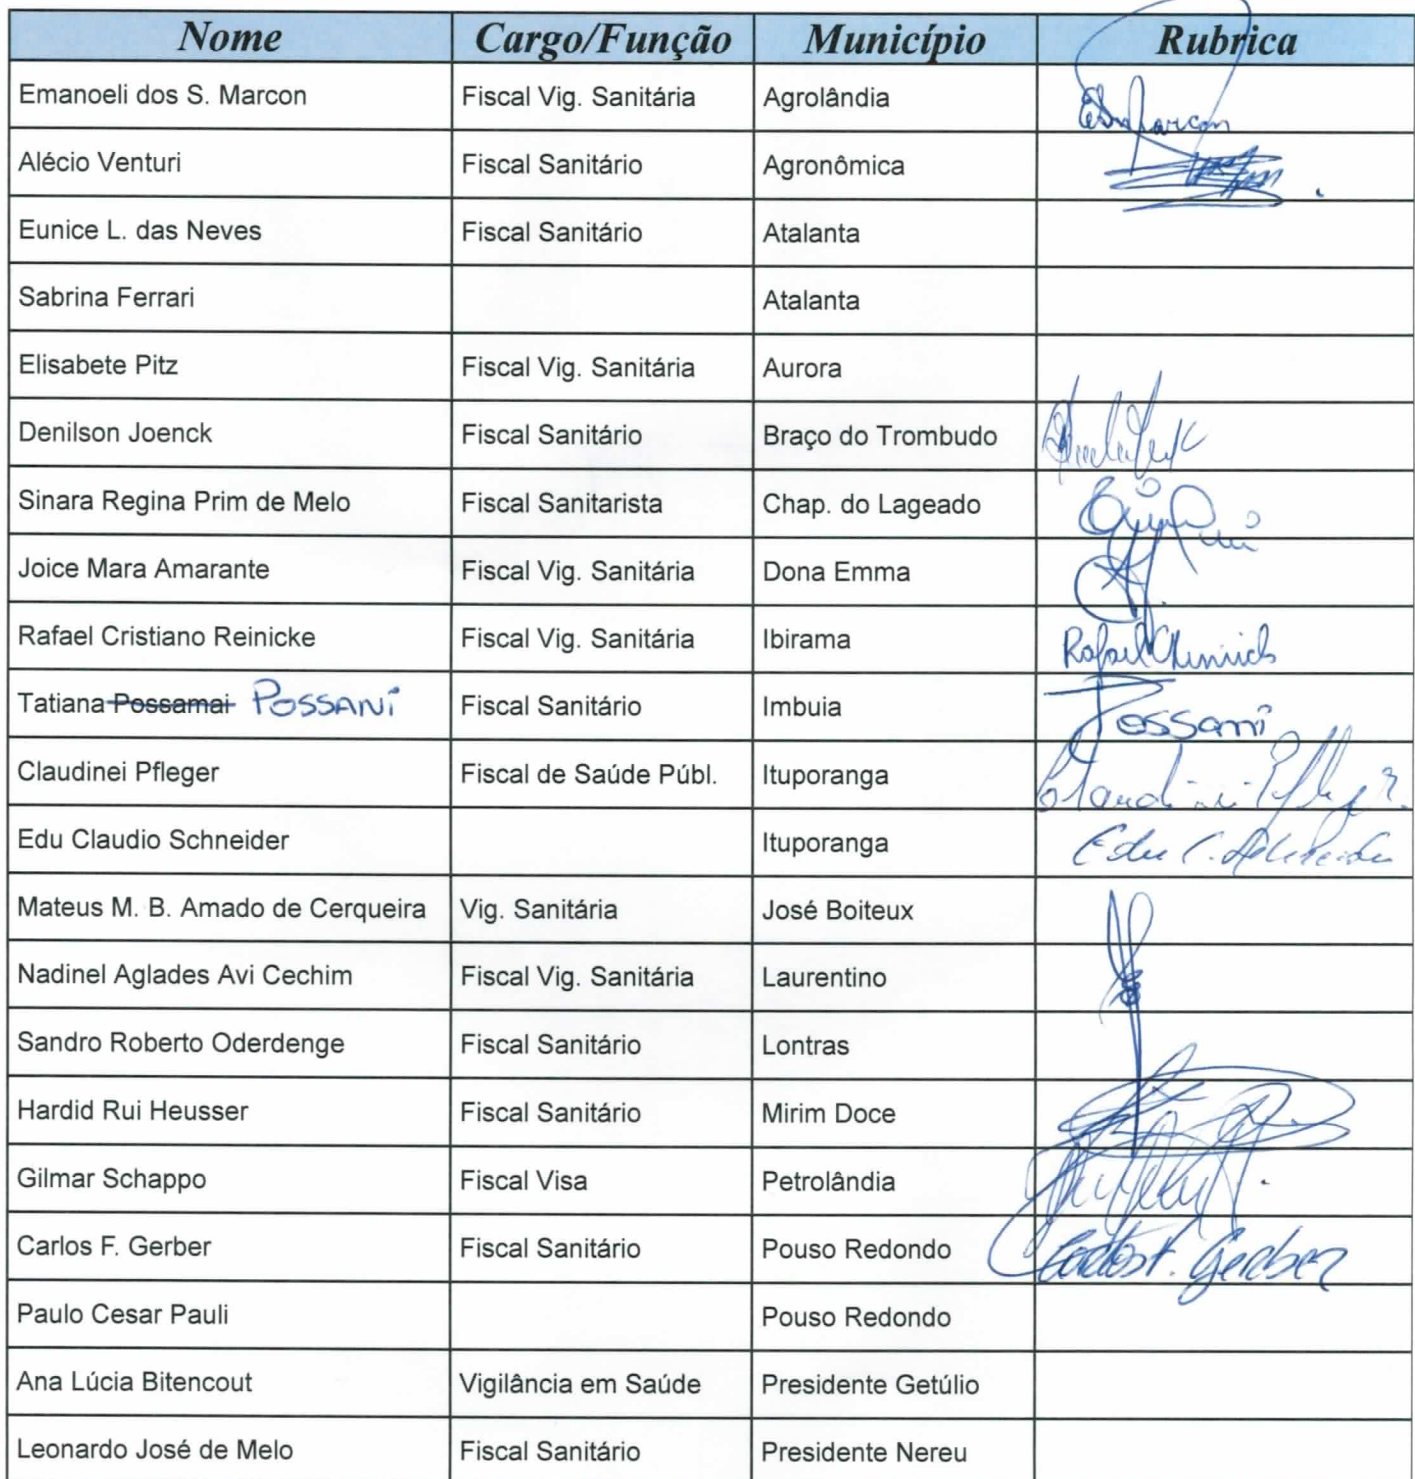 Nome Cargo/Função Município Rubrica
Emanoeli dos S. Marcon Fiscal Vig. Sanitária Agrolândia ESMarcon
Alécio Venturi Fiscal Sanitário Agronômica
Eunice L. das Neves Fiscal Sanitário Atalanta
Sabrina Ferrari Atalanta
Elisabete Pitz Fiscal Vig. Sanitária Aurora
Denilson Joenck Fiscal Sanitário Braço do Trombudo
Sinara Regina Prim de Melo Fiscal Sanitarista Chap. do Lageado
Joice Mara Amarante Fiscal Vig. Sanitária Dona Emma
Rafael Cristiano Reinicke Fiscal Vig. Sanitária Ibirama Rafael
Tatiana Possamai POSSANI Fiscal Sanitário Imbuia Possani
Claudinei Pfleger Fiscal de Saúde Públ. Ituporanga Claudinei Pfleger
Edu Claudio Schneider Ituporanga Edu C. Schneider
Mateus M. B. Amado de Cerqueira Vig. Sanitária José Boiteux
Nadinel Aglades Avi Cechim Fiscal Vig. Sanitária Laurentino
Sandro Roberto Oderdenge Fiscal Sanitário Lontras
Hardid Rui Heusser Fiscal Sanitário Mirim Doce
Gilmar Schappo Fiscal Visa Petrolândia
Carlos F. Gerber Fiscal Sanitário Pouso Redondo Carlos F. Gerber
Paulo Cesar Pauli Pouso Redondo
Ana Lúcia Bitencout Vigilância em Saúde Presidente Getúlio
Leonardo José de Melo Fiscal Sanitário Presidente Nereu